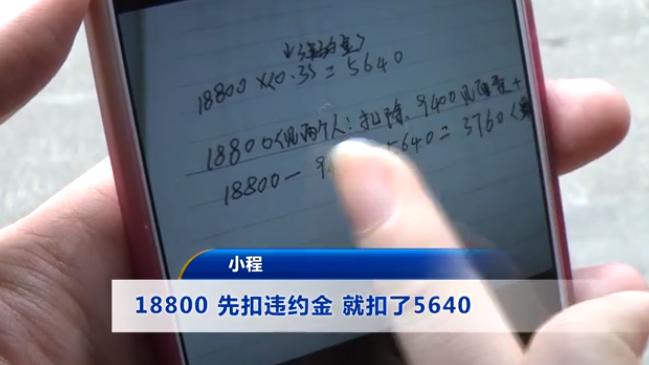 (违约金)
18800×(0.3)=5640
18800(见两个人:扣除、9400见面费+
18800-9 5640=3760(
小程
18800 先扣违约金 就扣了5640